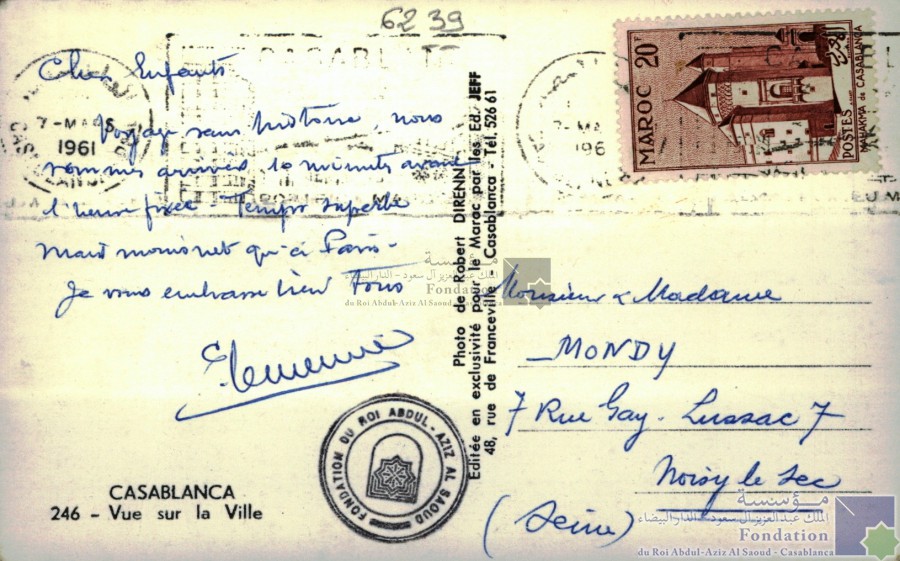 6239
Chers Enfants
Voyage sans histoire, nous
sommes arrivés 10 minutes avant
l'heure fixée Temps superbe
mais moins net qu'à Paris -
Je vous embrasse bien Tous
CASABLANCA
246 - Vue sur la Ville
FONDATION DU ROI ABDUL-AZIZ AL SAOUD
7-MARS
1961
Photo de Robert DIRENN
Editée en exclusivité pour le Maroc par les Ed. JEFF
48, rue de Franceville - Casablanca - Tél. 526 61
MAROC 20F
POSTES
MAHAKMA de CASABLANCA
Monsieur & Madame
MONDY
7 Rue Gay-Lussac 7
Noisy le Sec
(Seine)
مؤسسة
الملك عبد العزيز آل سعود - الدار البيضاء
Fondation
du Roi Abdul-Aziz Al Saoud - Casablanca
مؤسسة
الملك عبد العزيز آل سعود - الدار البيضاء
Fondation
du Roi Abdul-Aziz Al Saoud - Casablanca